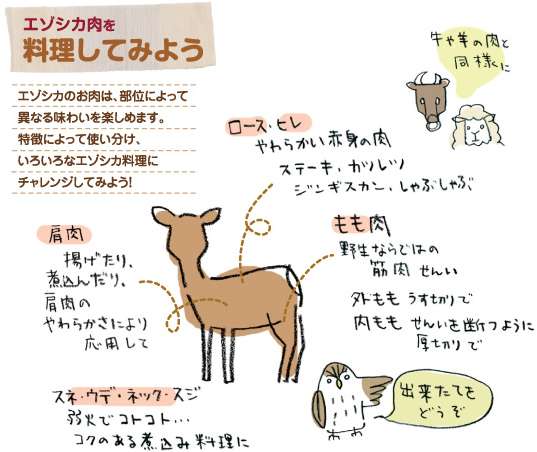 エゾシカ肉を
料理してみよう
エゾシカのお肉は、部位によって
異なる味わいを楽しめます。
特徴によって使い分け、
いろいろなエゾシカ料理に
チャレンジしてみよう!
牛や羊の肉と
同様に
ロース・ヒレ
やわらかい赤身の肉
ステーキ、カツレツ
ジンギスカン、しゃぶしゃぶ
肩肉
揚げたり、
煮込んだり、
肩肉の
やわらかさにより
応用して
もも肉
野生ならではの
筋肉せんい
外もも うすぎりで
内もも せんいを断つように
厚ぎりで
スネ・ウデ・ネック・スジ
弱火でコトコト…
コクのある煮込み料理に
出来たてを
どうぞ